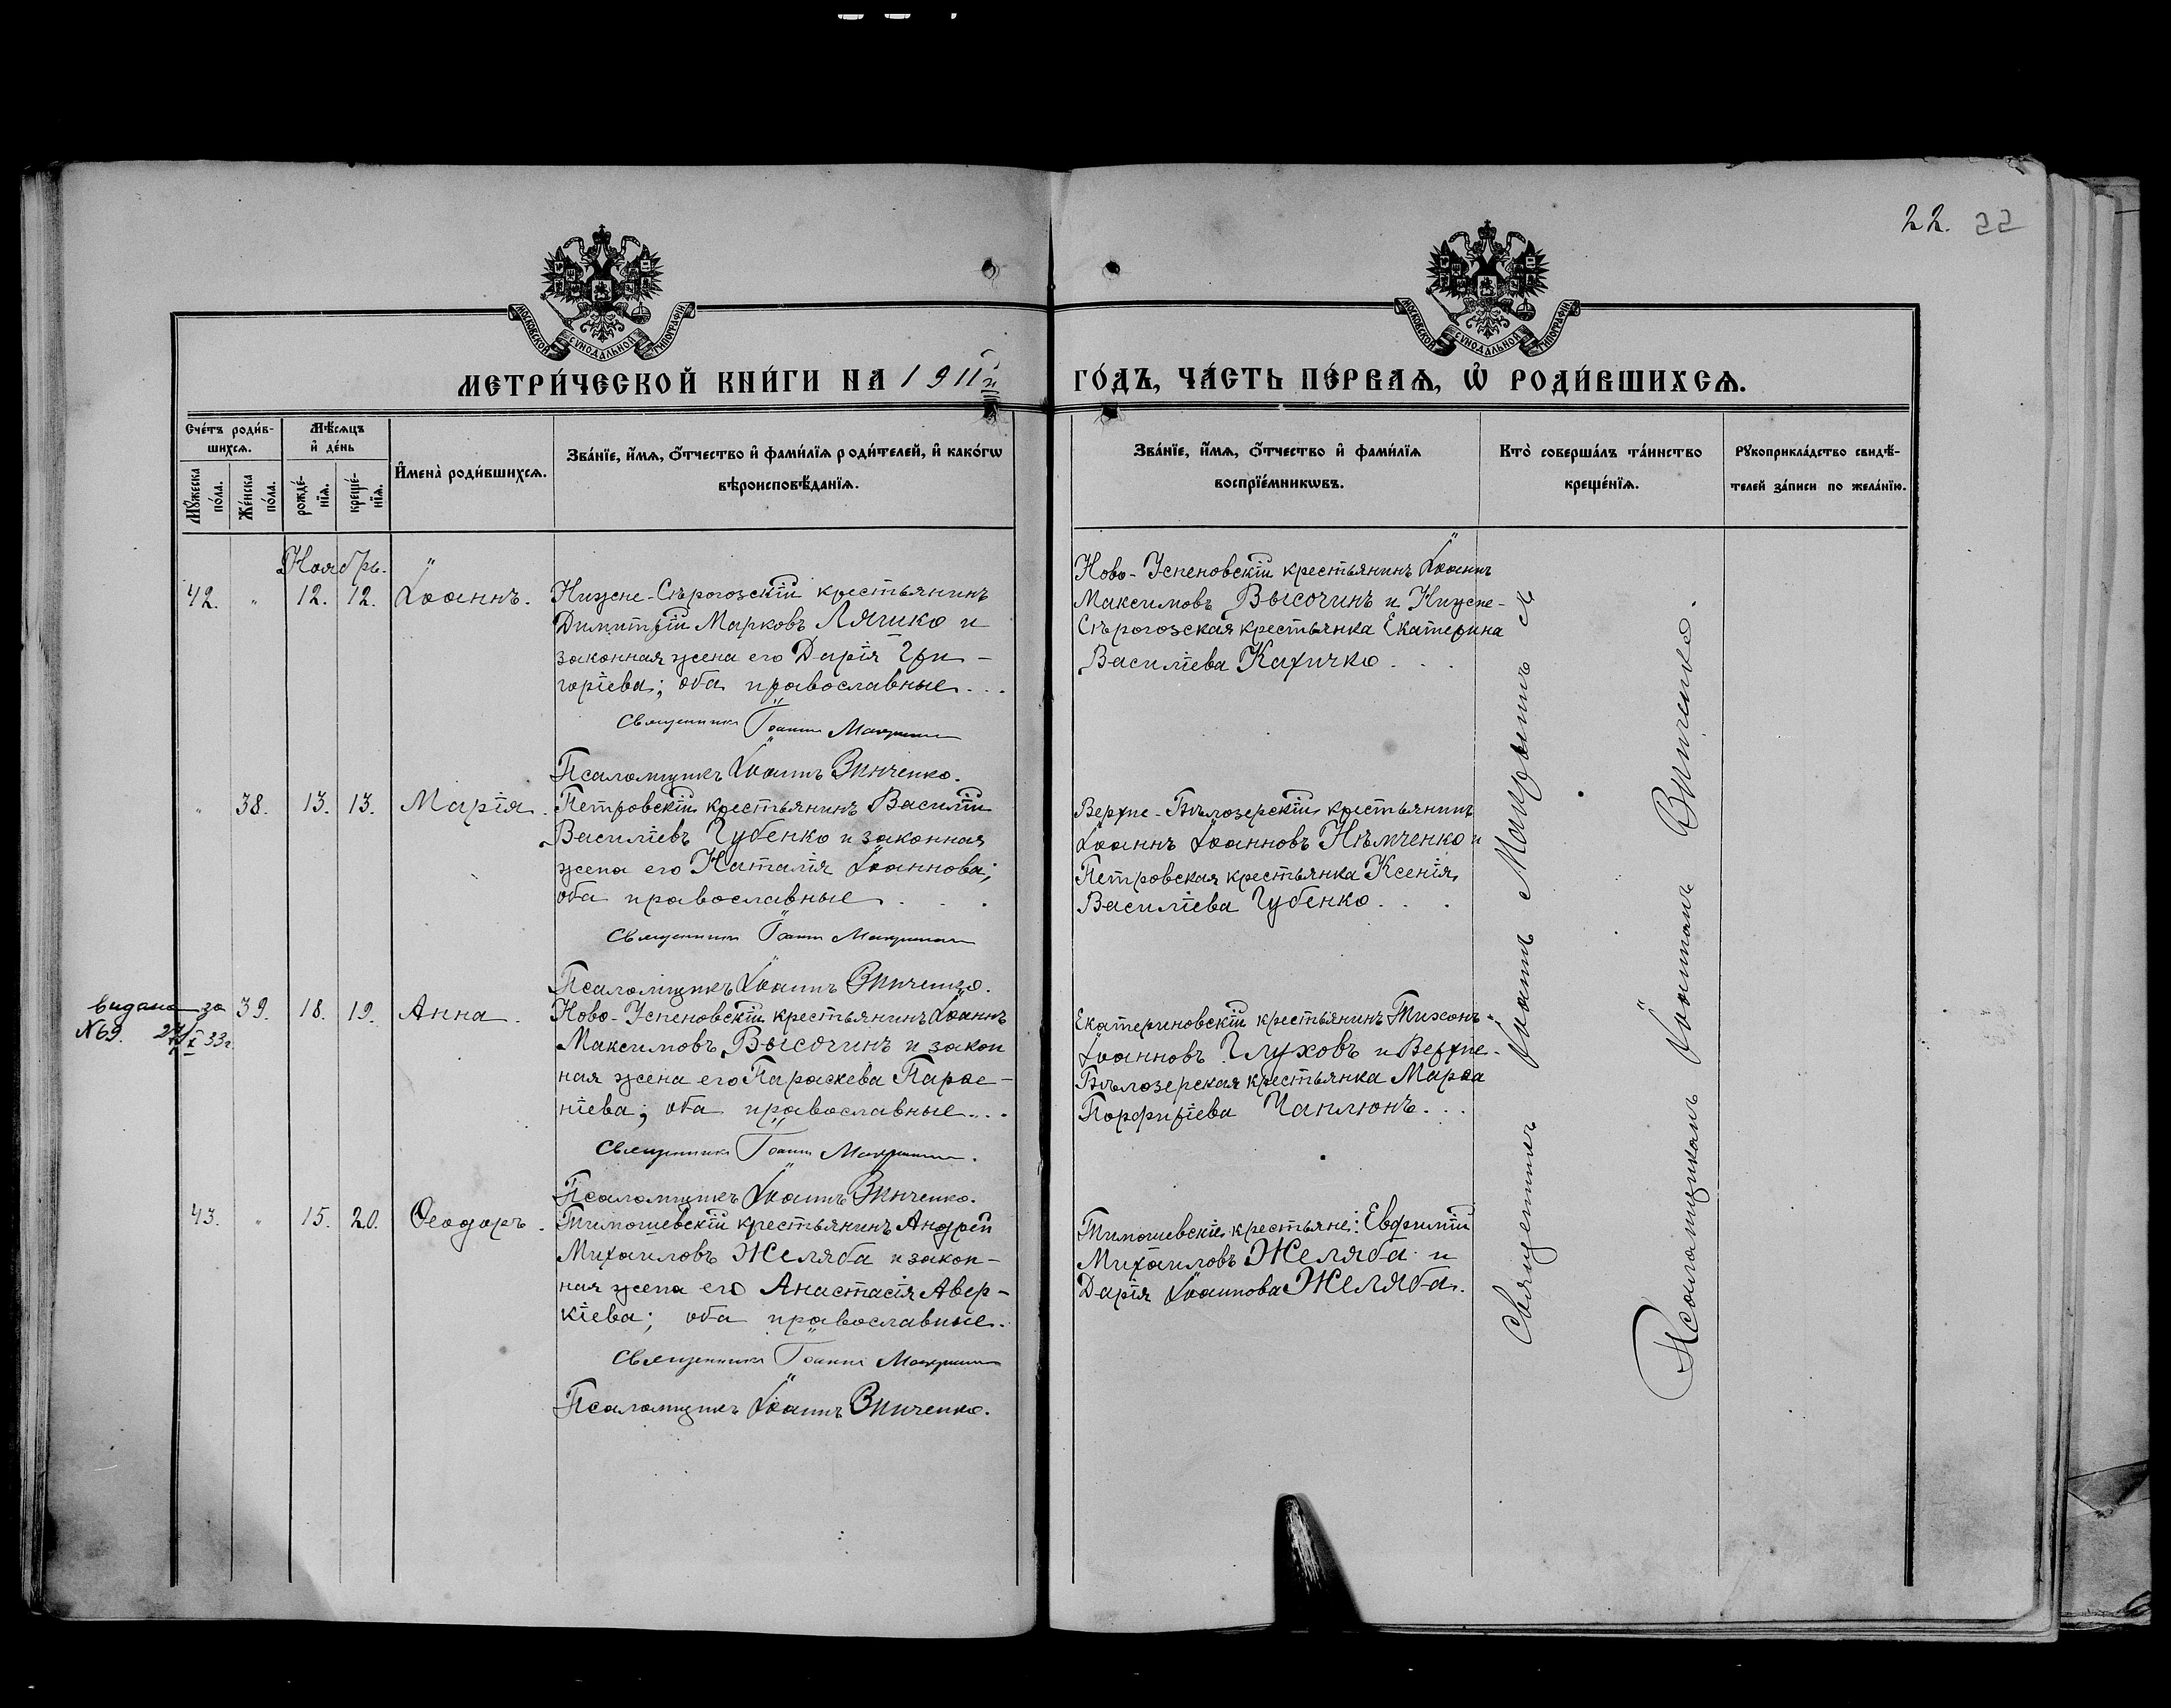 22. 22
МОСКОВСКОЙ СУНОДАЛЬНОЙ ТИПОГРАФІИ
МОСКОВСКОЙ СУНОДАЛЬНОЙ ТИПОГРАФІИ
МЕТРИ́ЧЕСКОЙ КНИ́ГИ НА 1911й ГО́ДЪ, ЧА́СТЬ ПЕ́РВАѦ, Ѡ҆ РОДИ́ВШИХСѦ.
Сче́тъ роди́в-
шихсѧ.
Мѣ́сѧцъ
и҆ де́нь
Мꙋ́жеска
по́ла.
Же́нска
по́ла.
рожде́-
нїѧ.
креще́-
нїѧ.
И҆мена̀ роди́вшихсѧ.
Зва́нїе, и҆́мѧ, ѻ҆́тчество и҆ фами́лїѧ роди́телей, и҆ како́гѡ
вѣроисповѣ́данїѧ.
Зва́нїе, и҆́мѧ, ѻ҆́тчество и҆ фами́лїѧ
воспрїе́мникѡвъ.
Кто̀ соверша́лъ та́инство
креще́нїѧ.
Рꙋкоприкла́дство свидѣ́-
телей за́писи по жела́нїю.
Ноябрь.
42. " 12. 12. Іоаннъ.
Нижне-Сѣрогозскій крестьянинъ
Димитрій Марковъ Лячико и
законная жена его Дарія Гри-
горіева; оба православные...
Священникъ Іоаннъ
Псаломщикъ Іоаннъ Зинченко.
Ново-Успеновскій крестьянинъ Іоаннъ
Максимовъ Высочинъ и Нижне-
Сѣрогозская крестьянка Екатерина
Василіева Кахичко...
" 38. 13. 13. Марія.
Петровскій крестьянинъ Василій
Василіевъ Губенко и законная
жена его Наталія Іоаннова;
оба православные...
Священникъ Іоаннъ
Псаломщикъ Іоаннъ Зинченко.
Верхне-Бѣлозерскій крестьянинъ
Іоаннъ Іоанновъ Нѣмченко и
Петровская крестьянка Ксенія
Василіева Губенко...
видано за
№69. 33г.
39. 18. 19. Анна.
Ново-Успеновскій крестьянинъ Іоаннъ
Максимовъ Высочинъ и закон
ная жена его Параскева Парѳе-
ніева; оба православные...
Священникъ Іоаннъ
Псаломщикъ Іоаннъ Зинченко.
Екатериновскій крестьянинъ Тихонъ
Іоанновъ Глуховъ и Верхне-
Бѣлозерская крестьянка Марѳа
Порфиріева Чаплюнъ...
43. " 15. 20. Ѳеодоръ.
Тимошевскій крестьянинъ Андрей
Михаиловъ Желяба и закон-
ная жена его Анастасія Авер-
кіева; оба православные.
Священникъ Іоаннъ
Псаломщикъ Іоаннъ Зинченко.
Тимошевскіе крестьяне: Евфимій
Михаиловъ Желяба и
Дарія Іоаннова Желяба.
Священникъ Іоаннъ
Псаломщикомъ Іоанномъ Зинченко.